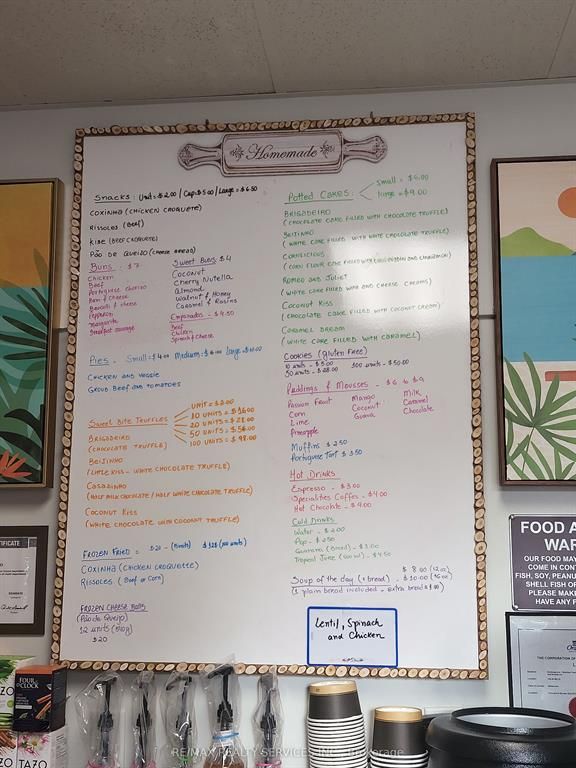 Homemade
Snacks: Unit=$2.00 / Cup=$5.00 / Large=$6.50
COXINHA (CHICKEN CROQUETE)
RISSOLES (BEEF)
KIBE (BEEF CROQUETE)
PÃO DE QUEIJO (CHEESE BREAD)
Buns - $7
Chicken
Beef
Portuguese chorizo
Ham & Cheese
Broccoli & cheese
Pepperoni
Margarita
Breakfast sausage
Sweet Buns $4
Coconut
Cherry Nutella
Almond
Walnut & Honey
Caramel & Raisins
Empanadas - $4.50
Beef
Chicken
Spinach & Cheese
Pies - Small=$4.00 Medium=$6.00 large=$10.00
CHICKEN AND VEGGIE
GROUD BEEF AND TOMATOES
Sweet Bite Truffles
UNIT = $2.00
10 UNITS = $16.00
20 UNITS = $28.00
50 UNITS = $56.00
100 UNITS = $98.00
BRIGADEIRO
(CHOCOLATE TRUFFLE)
BEIJINHO
(LITTLE KISS - WHITE CHOCOLATE TRUFFLE)
CASADINHO
(HALF MILK CHOCOLATE / HALF WHITE CHOCOLATE TRUFFLE)
COCONUT KISS
(WHITE CHOCOLATE WITH COCONUT TRUFFLE)
FROZEN FRIED =
COXINHA (CHICKEN CROQUETTE)
RISSOLES (BEEF OR CORN)
FROZEN CHEESE BALLS
(Pão de Queijo)
12 UNITS
$20
Potted Cakes:
small = $6.00
large = $9.00
BRIGADEIRO
(CHOCOLATE CAKE FILLED WITH CHOCOLATE TRUFFLE)
BEIJINHO
(WHITE CAKE FILLED WITH WHITE CHOCOLATE TRUFFLE)
CORNLICIOUS
ROMEO AND JULIET
COCONUT KISS
(CHOCOLATE CAKE FILLED WITH COCONUT CREAM)
CARAMEL DREAM
(WHITE CAKE FILLED WITH CARAMEL)
COOKIES (Gluten Free)
10 units - $5.00 100 units - $50.00
50 units - $28.00
Puddings & Mousses - $6 to $9
Passion Fruit Mango Milk
Corn Coconut Caramel
Lime Guava Chocolate
Pineapple
Muffins $2.50
Portuguese Tart $3.50
Hot Drinks
Espresso - $3.00
Specialities Coffes - $4.00
Hot Chocolate - $4.00
Cold Drinks
Water - $2.00
Pop - $2.50
Guarana (Brazil) - $3.00
Tropical Juice (500ml) - $4.50
Soup of the day (+ bread) - $8.00 (12oz)
$10.00 (16oz)
(1 plain bread included - extra bread $1.00)
Lentil, Spinach
and Chicken
FOOD A
WAR
OUR FOOD MAY
COME IN CONT
FISH, SOY, PEANU
SHELL FISH OF
PLEASE MAKE
HAVE ANY F
RTIFICATE
THE CORPORATION OF
ZO
FOUR
O'CLOCK
ZO
TAZO
RE/MAX REALTY SERVICES INC., Brokerage